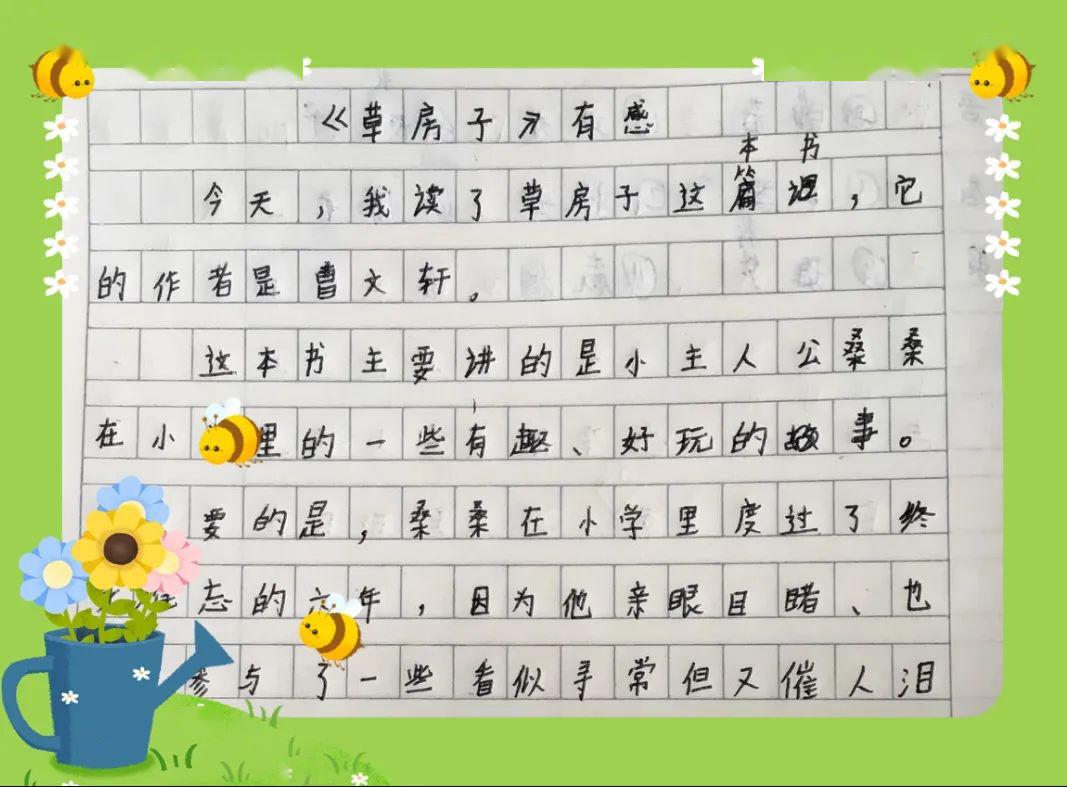 《草房子》有感
本书
今天，我读了草房子这篇，它
的作者是曹文轩。
这本书主要讲的是小主人公桑桑
在小里的一些有趣、好玩的故事。
要的是，桑桑在小学里度过了终
忘的六年，因为他亲眼目睹、也
参与了一些看似寻常但又催人泪